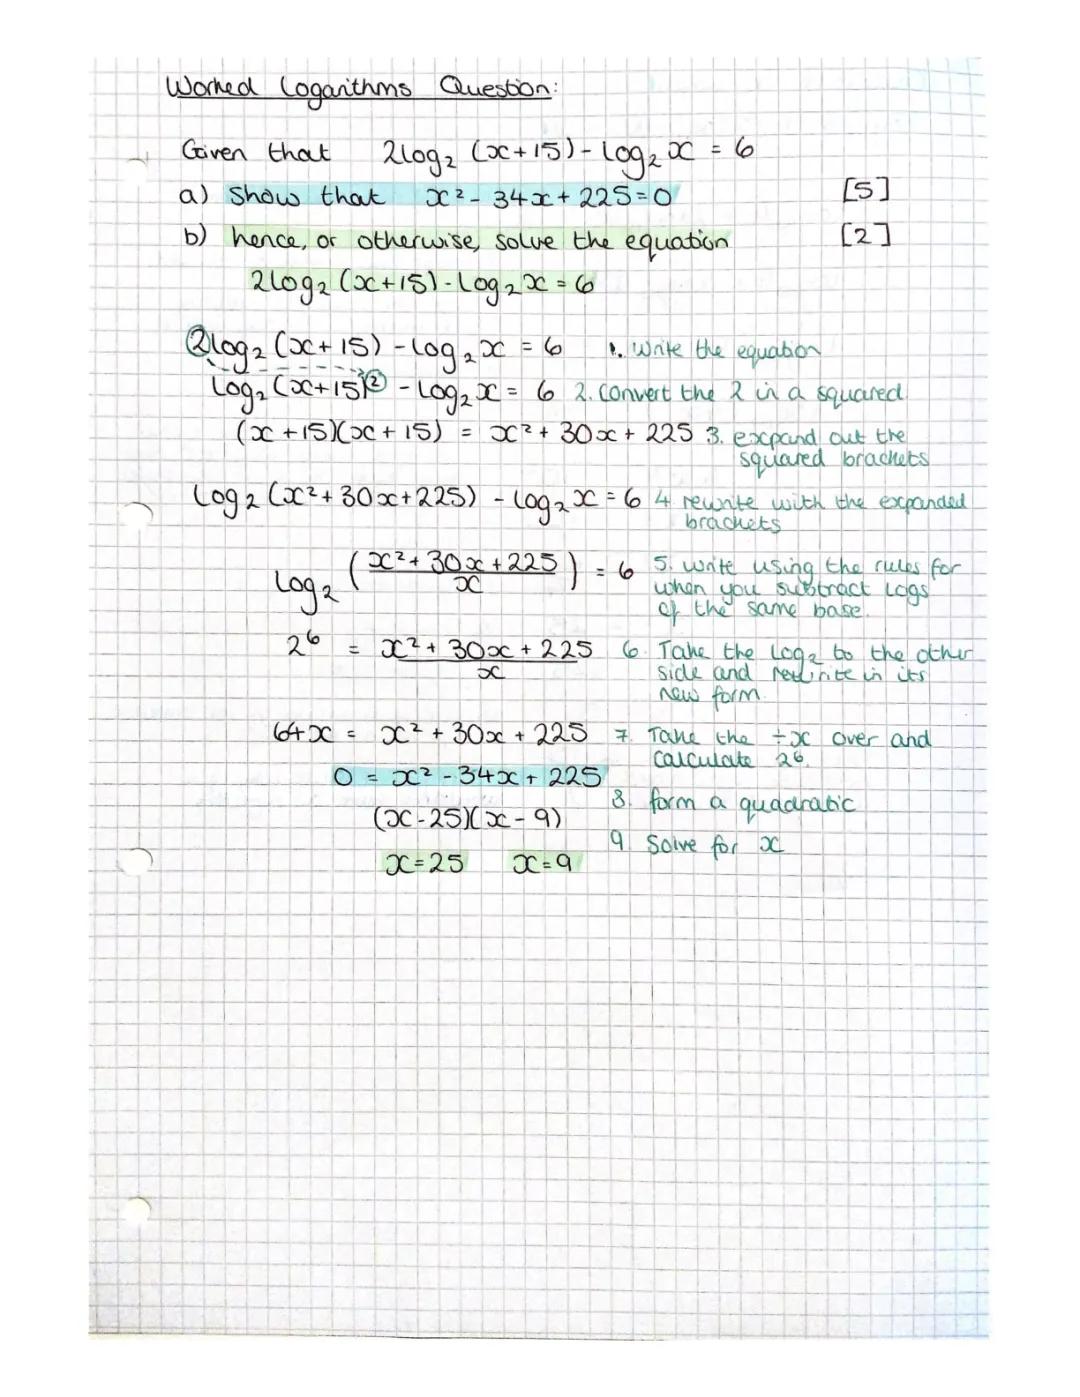 Worked Logarithms Question:
Given that 2log₂ (x+15) - log₂ x = 6
a) Show that x² - 34x + 225 = 0 [5]
b) hence, or otherwise, solve the equation [2]
2log₂ (x+15) - log₂ x = 6
2log₂ (x+15) - log₂ x = 6 1. Write the equation
log₂ (x+15)² - log₂ x = 6 2. Convert the 2 in a squared.
(x+15)(x+15) = x² + 30x + 225 3. expand out the
squared brackets
log₂ (x²+30x+225) - log₂ x = 6 4 rewrite with the expanded
brackets
log₂ (x²+30x+225 / x) = 6 5. write using the rules for
when you subtract logs
of the same base.
2⁶ = x² + 30x + 225 / x 6. Take the log₂ to the other
side and rewrite in its
new form.
64x = x² + 30x + 225 7. Take the ÷x over and
calculate 2⁶.
0 = x² - 34x + 225
8. form a quadratic
(x-25)(x-9)
9. Solve for x
x=25 x=9